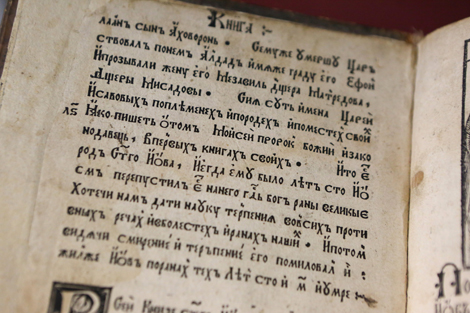 Книга :~
лаан сын Аховоронь · Семуже умершу Царъ
ствовал понем Алдад имяже граду его Ефои
Ипрозывали жену его Мезавиль дщера Матредова,
Дщеры Мисадовы · Сия суть имена Царей
Исавовых поплеменех ипородех ипоместех своих
Яко пишеть ѡтом Моисеи пророк божии изако
нодавець, Впервых книгах своихъ · Ито е
род Ст҃го Иѡва, Иегда ему было лѣтъ сто
перепустил нанего гд҃ь богъ раны великые
Хотечи нам дати науку терпения вовсих проти
вных речах иѡболестех иранах наших · Ипотом
видячи смирение и терьпение его помиловал и
жилже Иѡвъ поранах тех лѣтъ сто и м҃ иумре